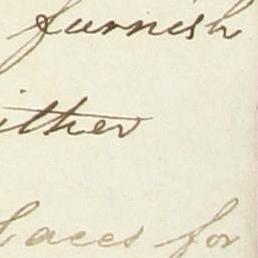 furnish
ither
laces for